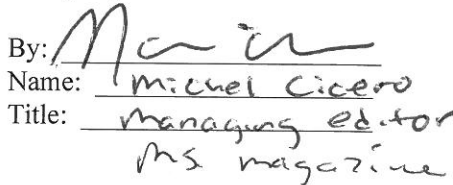 By:
Name: Michel Cicero
Title: Managing editor
Ms magazine